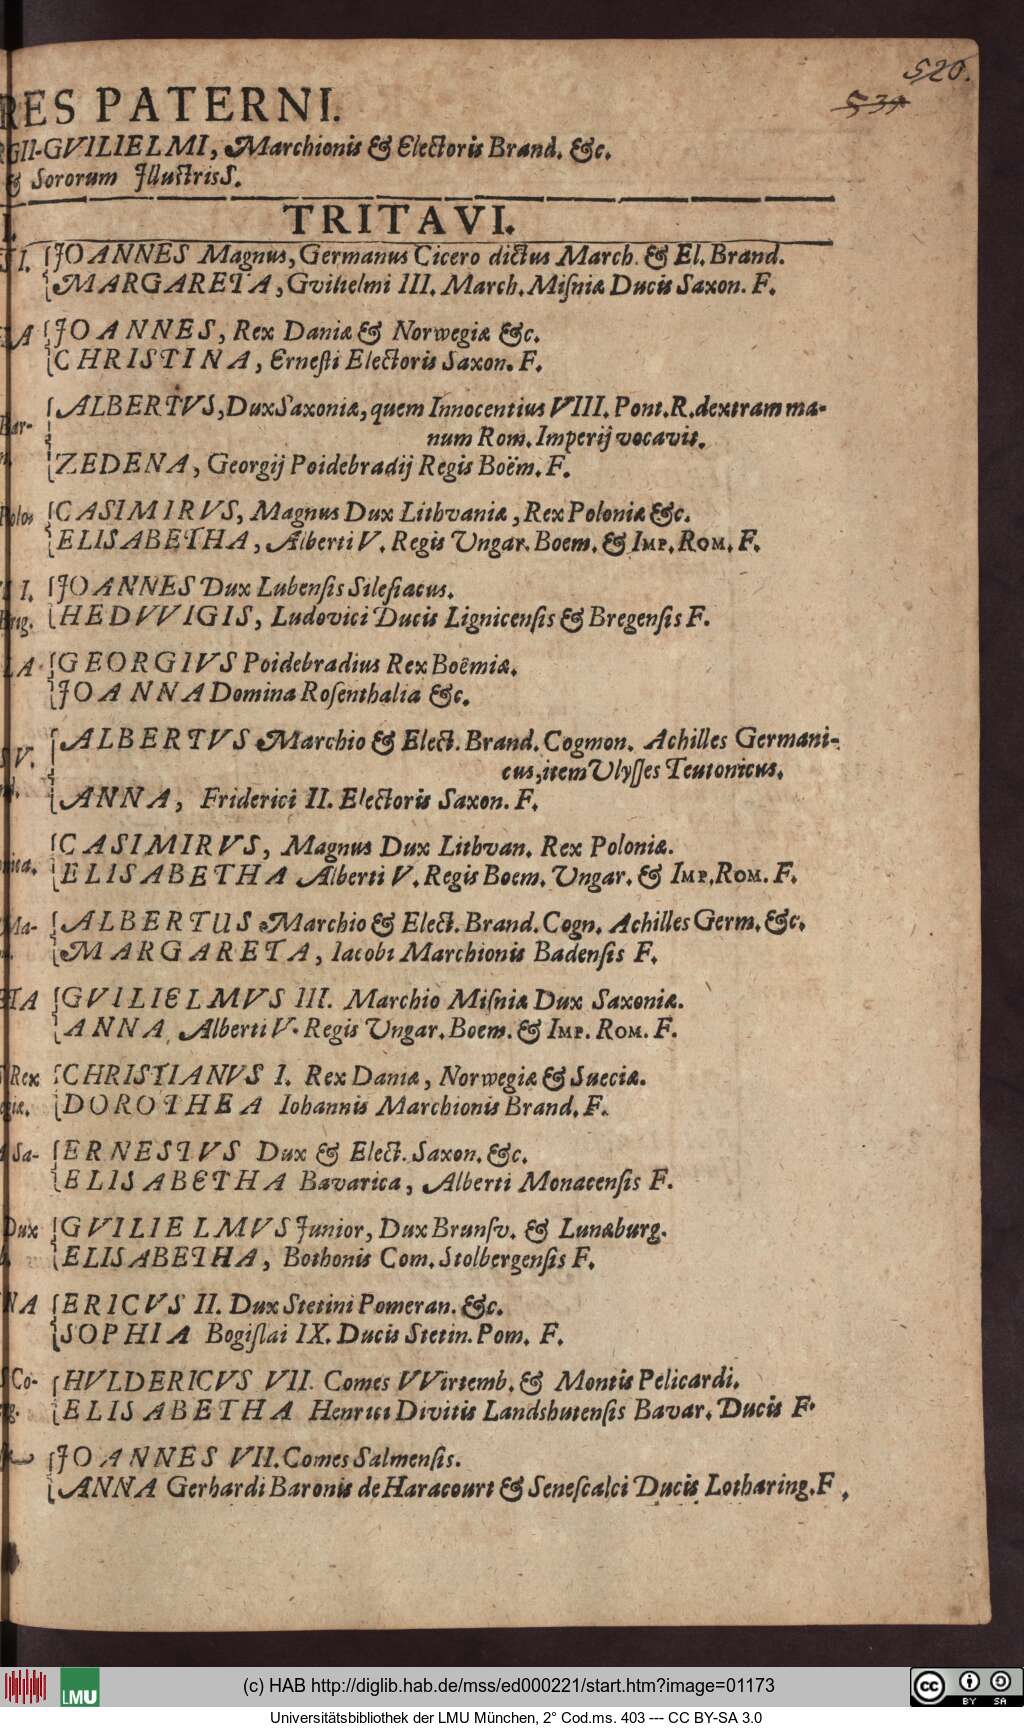 520.
539
RES PATERNI.
RGII-GVILIELMI, Marchionis & Electoris Brand. &c.
& Sororum JllustrisS.
I. TRITAVI.
S I. JOANNES Magnus, Germanus Cicero dictus March. & El. Brand.
MARGARETA, Gvilielmi III. March. Miſniæ Ducis Saxon. F.
LA JOANNES, Rex Daniæ & Norwegiæ &c.
CHRISTINA, Erneſti Electoris Saxon. F.
Bar- ALBERTVS, Dux Saxoniæ, quem Innocentius VIII. Pont. R. dextram ma-
num Rom. Imperij vocavit.
ZEDENA, Georgij Poidebradij Regis Boëm. F.
Polon CASIMIRVS, Magnus Dux Lithvaniæ, Rex Poloniæ &c.
ELISABETHA, Alberti V. Regis Ungar. Boem. & IMP. ROM. F.
I. JOANNES Dux Lubenſis Sileſiacus.
Brig. HEDVVIGIS, Ludovici Ducis Lignicenſis & Bregenſis F.
LA GEORGIVS Poidebradius Rex Boëmiæ.
JOANNA Domina Roſenthalia &c.
S V. ALBERTVS Marchio & Elect. Brand. Cogmon. Achilles Germani-
cus, item Ulyſſes Teutonicus.
ANNA, Friderici II. Electoris Saxon. F.
CASIMIRVS, Magnus Dux Lithvan. Rex Poloniæ.
nica. ELISABETHA Alberti V. Regis Boem. Ungar. & IMP. ROM. F.
Ma- ALBERTUS Marchio & Elect. Brand. Cogn. Achilles Germ. &c.
MARGARETA, Iacobi Marchionis Badenſis F.
ETA GVILIELMVS III. Marchio Miſniæ Dux Saxoniæ.
ANNA, Alberti V. Regis Ungar. Boem. & IMP. ROM. F.
S Rex CHRISTIANVS I. Rex Daniæ, Norwegiæ & Sueciæ.
giæ. DOROTHEA Iohannis Marchionis Brand. F.
Sa- ERNESTVS Dux & Elect. Saxon. &c.
ELISABETHA Bavarica, Alberti Monacenſis F.
Dux GVILIELMVS Junior, Dux Brunſv. & Lunæburg.
ELISABETHA, Bothonis Com. Stolbergenſis F.
NA ERICVS II. Dux Stetini Pomeran. &c.
SOPHIA Bogiſlai IX. Ducis Stetin. Pom. F.
S Co- HVLDERICVS VII. Comes VVirtemb. & Montis Pelicardi.
g. ELISABETHA Henrici Divitis Landshutenſis Bavar. Ducis F.
JOANNES VII. Comes Salmenſis.
ANNA Gerhardi Baronis de Haracourt & Seneſcalci Ducis Lotharing. F.
LMU
(c) HAB http://diglib.hab.de/mss/ed000221/start.htm?image=01173
cc BY SA
Universitätsbibliothek der LMU München, 2° Cod.ms. 403 --- CC BY-SA 3.0